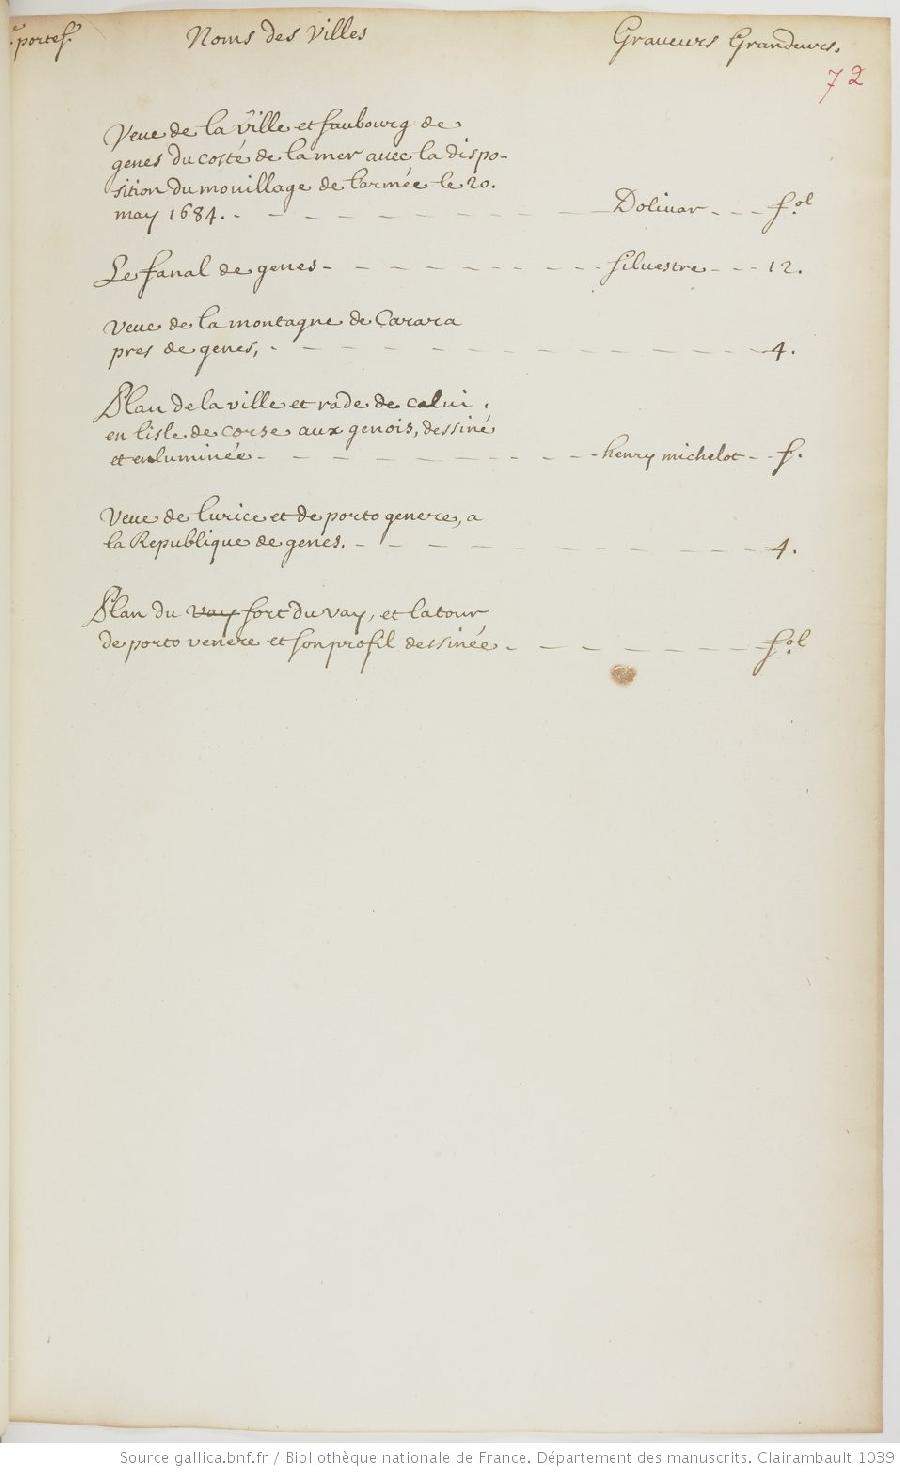 portef. Noms des villes Graveurs Grandeurs.
72
Veue de la ville et faubourg de
genes du costé de la mer avec la dispo-
sition du mouillage de l'armée le 20.
may 1684. Dolivar f.ol
Le fanal de genes silvestre 12.
Veue de la montagne de Carara
pres de genes, 4.
Plan de la ville et rade de calvi.
en l'isle de corse aux genois, dessiné
et enluminée henry michelot f.
Veue de lurice et de porto genere, a
la Republique de genes. 4.
Plan du vay fort du vay, et la tour
de porto venere et son profil dessinée f.ol
Source gallica.bnf.fr / Bibliothèque nationale de France. Département des manuscrits. Clairambault 1039